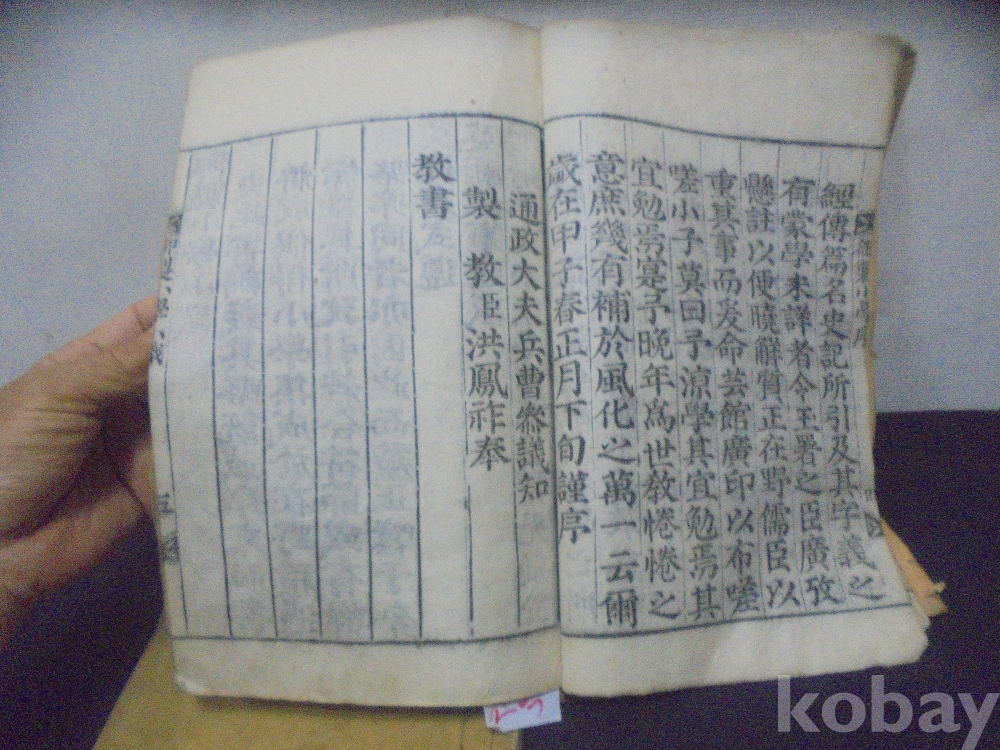 經傳篇名史記所引及其字義之
有蒙學未詳者令玉署之臣廣攷
懸註以便曉解質正在野儒臣以
重其事而友命芸館廣印以布嗟
嗟小子莫曰予涼學其宜勉焉其
宜勉焉寔予晚年爲世敎惓惓之
意庶幾有補於風化之萬一云爾
歲在甲子春正月下旬謹序
通政大夫兵曹參議知
製 敎臣洪鳳祚奉
敎書
kobay